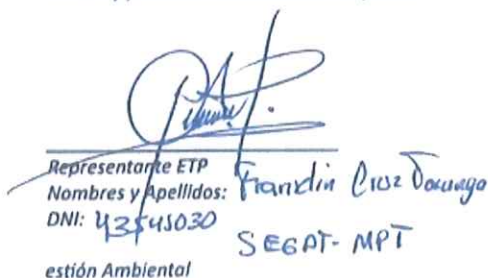 Representante ETP
Nombres y Apellidos: Franklin Cruz
DNI:
SEGAT- MPT
estión Ambiental